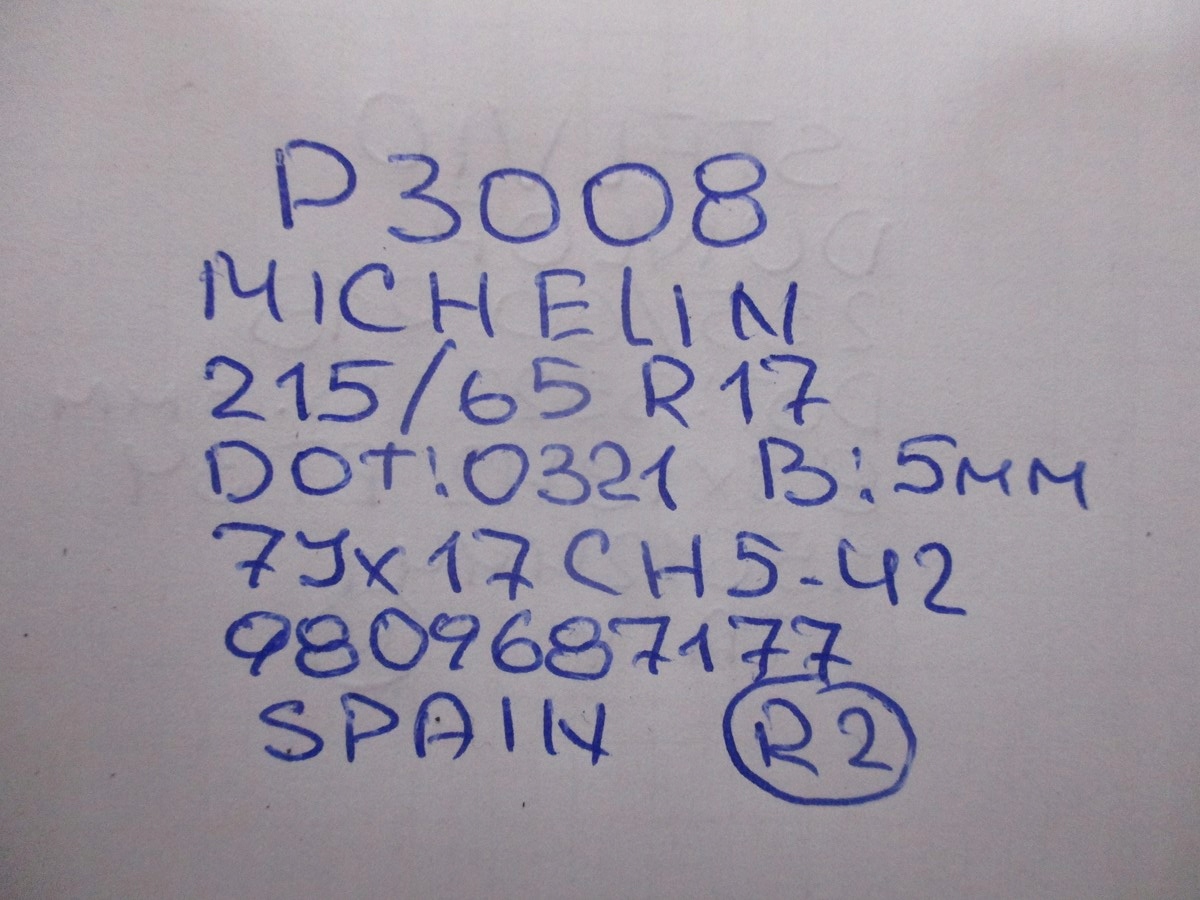 P3008
MICHELIN
215/65 R17
DOT:0321 B:5мм
7Jx17CH5-42
9809687177
SPAIN R2